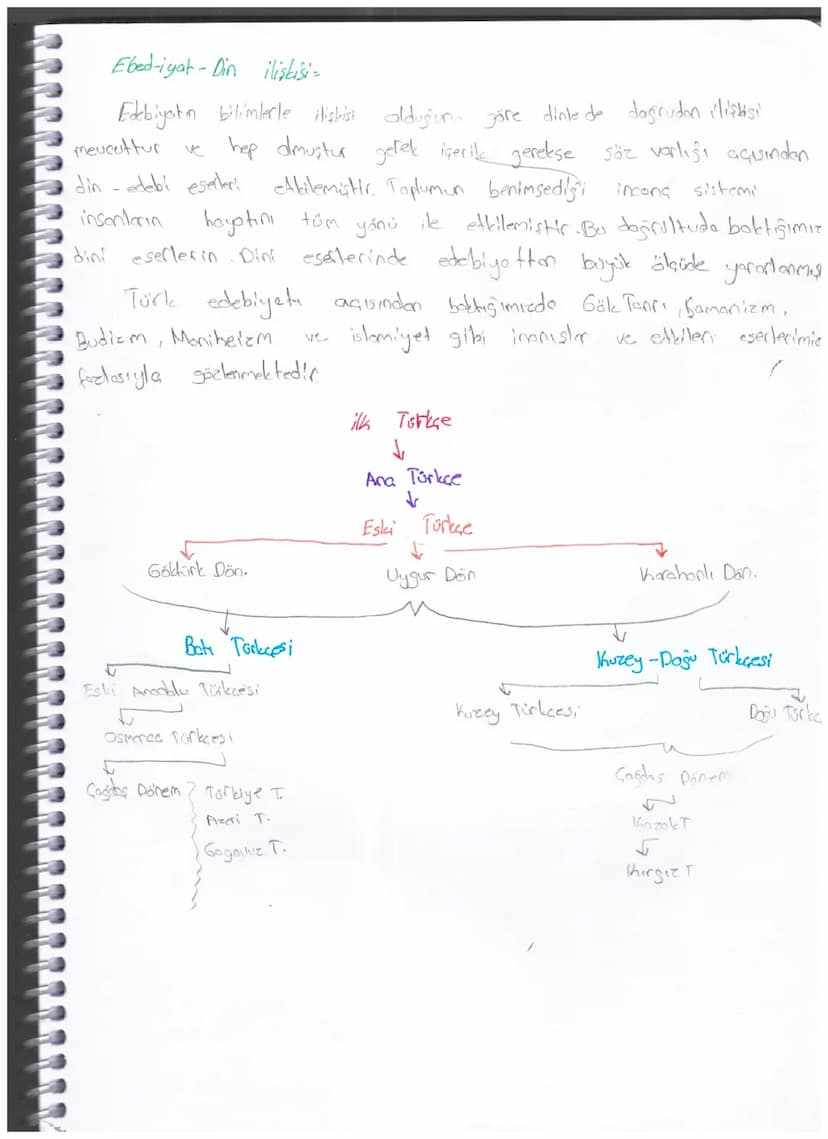 Ebed-iyat-Din ilişkisi=
Edebiyatın bilimlerle ilişkisi olduğun. göre dinle de doğrudan ilişkisi
mevcuttur ve hep olmuştur gerek içerik gerekse söz varlığı açısından
din - edebi eserleri etkilemiştir. Toplumun benimsediği inanç sistemi
insanların hayatını tüm yönü ile etkilemiştir. Bu doğrultuda baktığımız
dini eserlerin. Dini eserlerinde edebiyattan büyük ölçüde yararlanmış
Türk edebiyatı açısından baktığımızda Gök Tanrı, Şamanizm,
Budizm, Maniheizm ve islamiyet gibi inanışlar ve etkileri eserlerimiz
fazlasıyla gözlenmektedir
ilk Türkçe
Ana Türkçe
Eski Türkçe
Göktürk Dön. Uygur Dön Karahanlı Dön.
Batı Türkçesi Kuzey-Doğu Türkçesi
Eski Anadolu Türkçesi Kuzey Türkçesi Doğu Türkç
Osmanlı Türkçesi
Çağdaş Dönem Türkiye T Çağdaş Dönem
Azeri T. Kazak T
Gagavuz T. Kırgız T